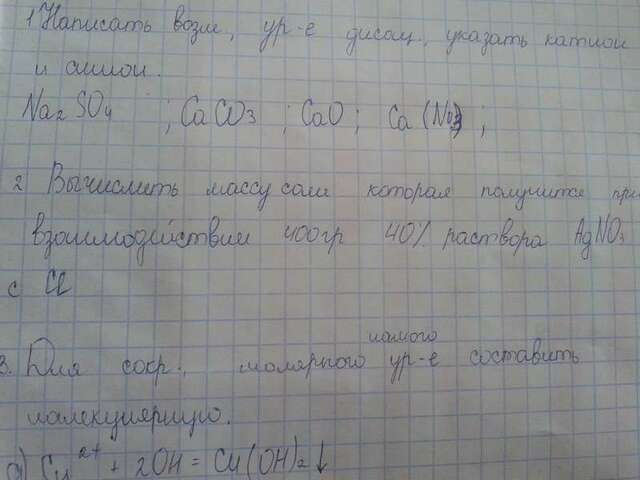 1 Написать возм, ур-е дисоц., указать катион
и анион.
Na2 SO4 ; CaCO3 ; CaO ; Ca (NO3) ;
2 Вычислить массу соли которая получится при
взаимодействии 400гр 40% раствора AgNO3
с Cl
3. Для сокр., молярного ионного ур-е составить
малекулярную.
a) Cu2+ + 2OH = Cu(OH)2↓